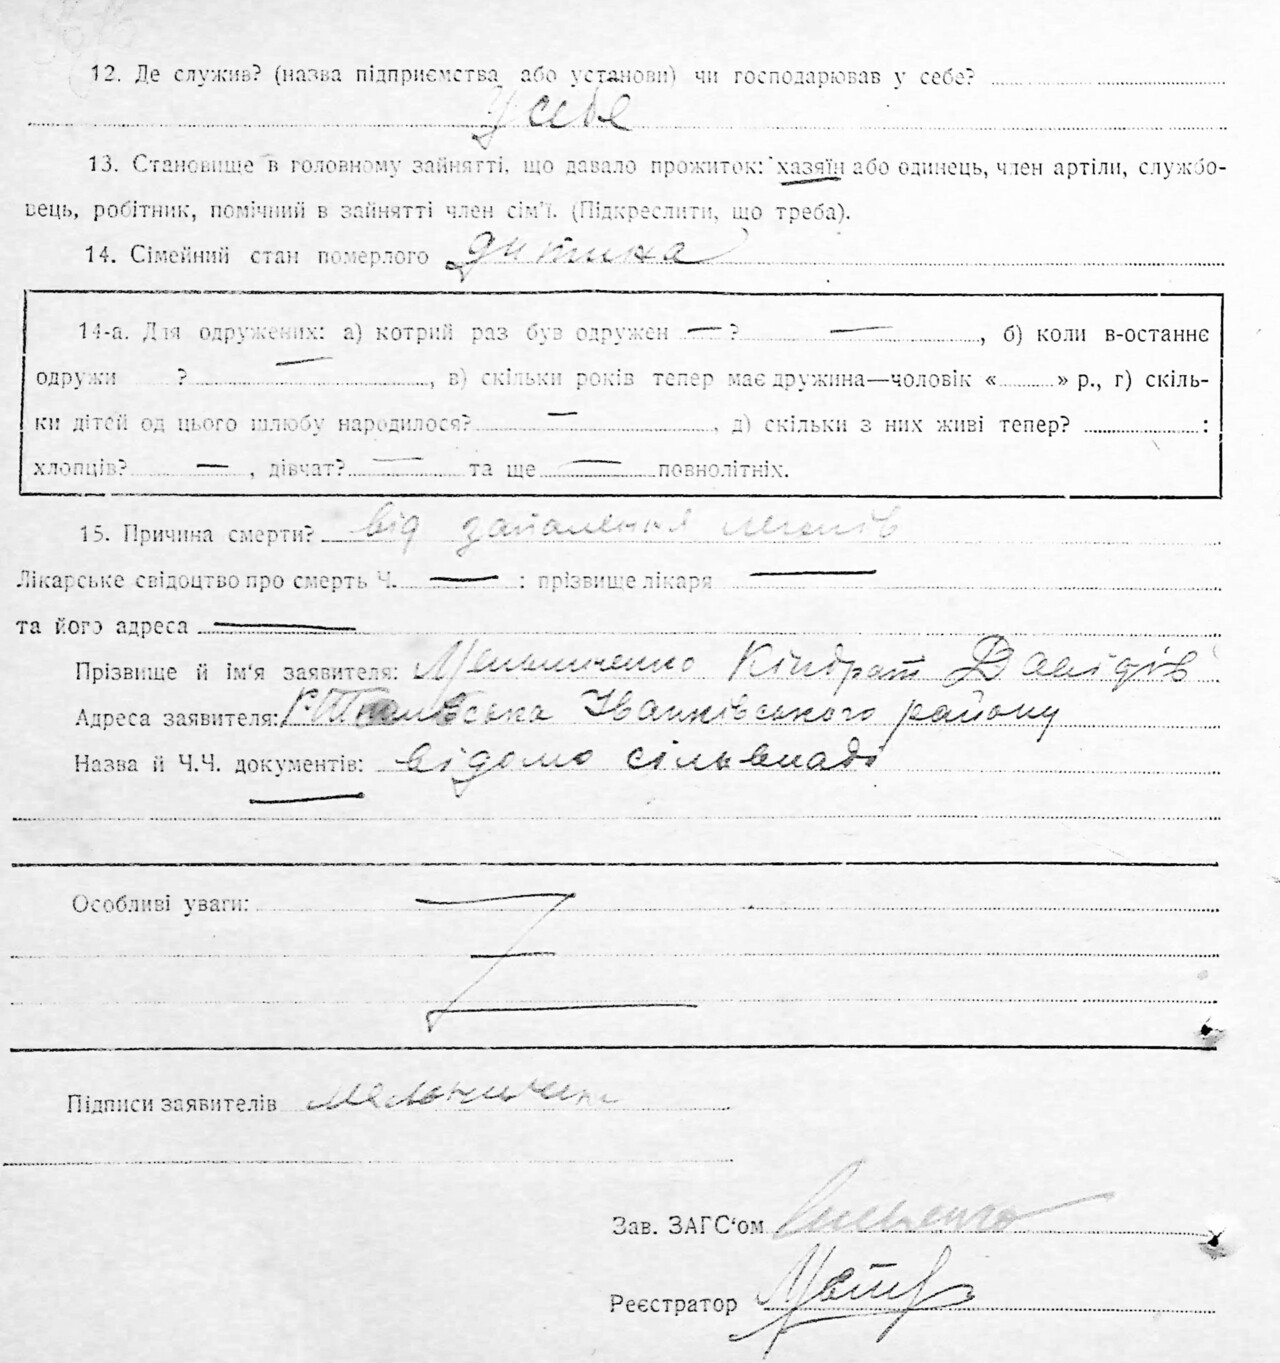 12. Де служив? (назва підприємства або установи) чи господарював у себе?
У себе
13. Становище в головному зайнятті, що давало прожиток: хазяїн або одинець, член артіли, службо-
вець, робітник, помічний в зайнятті член сім'ї. (Підкреслити, що треба).
14. Сімейний стан померлого дитина
14-а. Для одружених: а) котрий раз був одружен — ? —, б) коли в-останнє
одружи ? —, в) скільки років тепер має дружина—чоловік « » р., г) скіль-
ки дітей од цього шлюбу народилося? —, д) скільки з них живі тепер? :
хлопців? —, дівчат? — та ще — повнолітніх.
15. Причина смерти? від запалення легенів
Лікарське свідоцтво про смерть Ч. — : прізвище лікаря —
та його адреса —
Прізвище й ім'я заявителя: Мельниченко Кіндрат Давідів
Адреса заявителя: Іванківського району
Назва й Ч.Ч. документів: відомо сільвладі
—
Особливі уваги:
Підписи заявителів Мельничен
Зав. ЗАГС'ом
Реєстратор